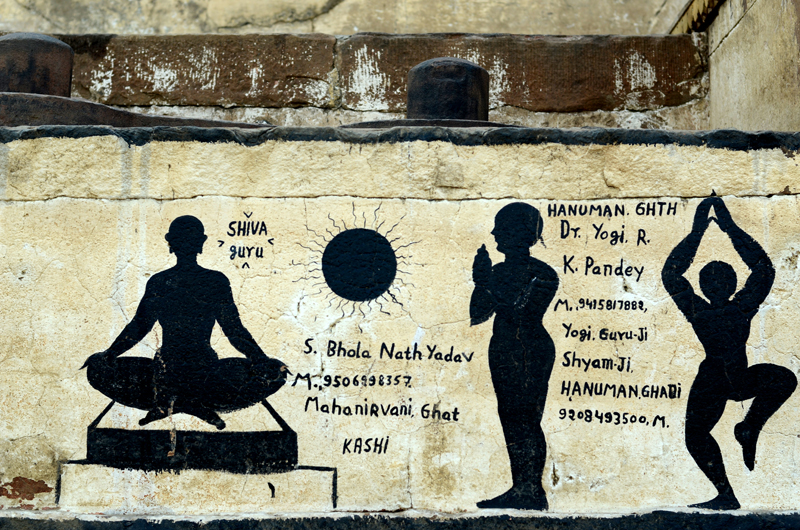 SHIVA
guru
S. Bhola Nath Yadav
M., 9506998357,
Mahanirvani, Ghat
KASHI
HANUMAN. GHTH
Dr. Yogi. R.
K. Pandey
M., 9415817882,
Yogi. Guru-Ji
Shyam-Ji,
HANUMAN, GHADI
9208493500, M.